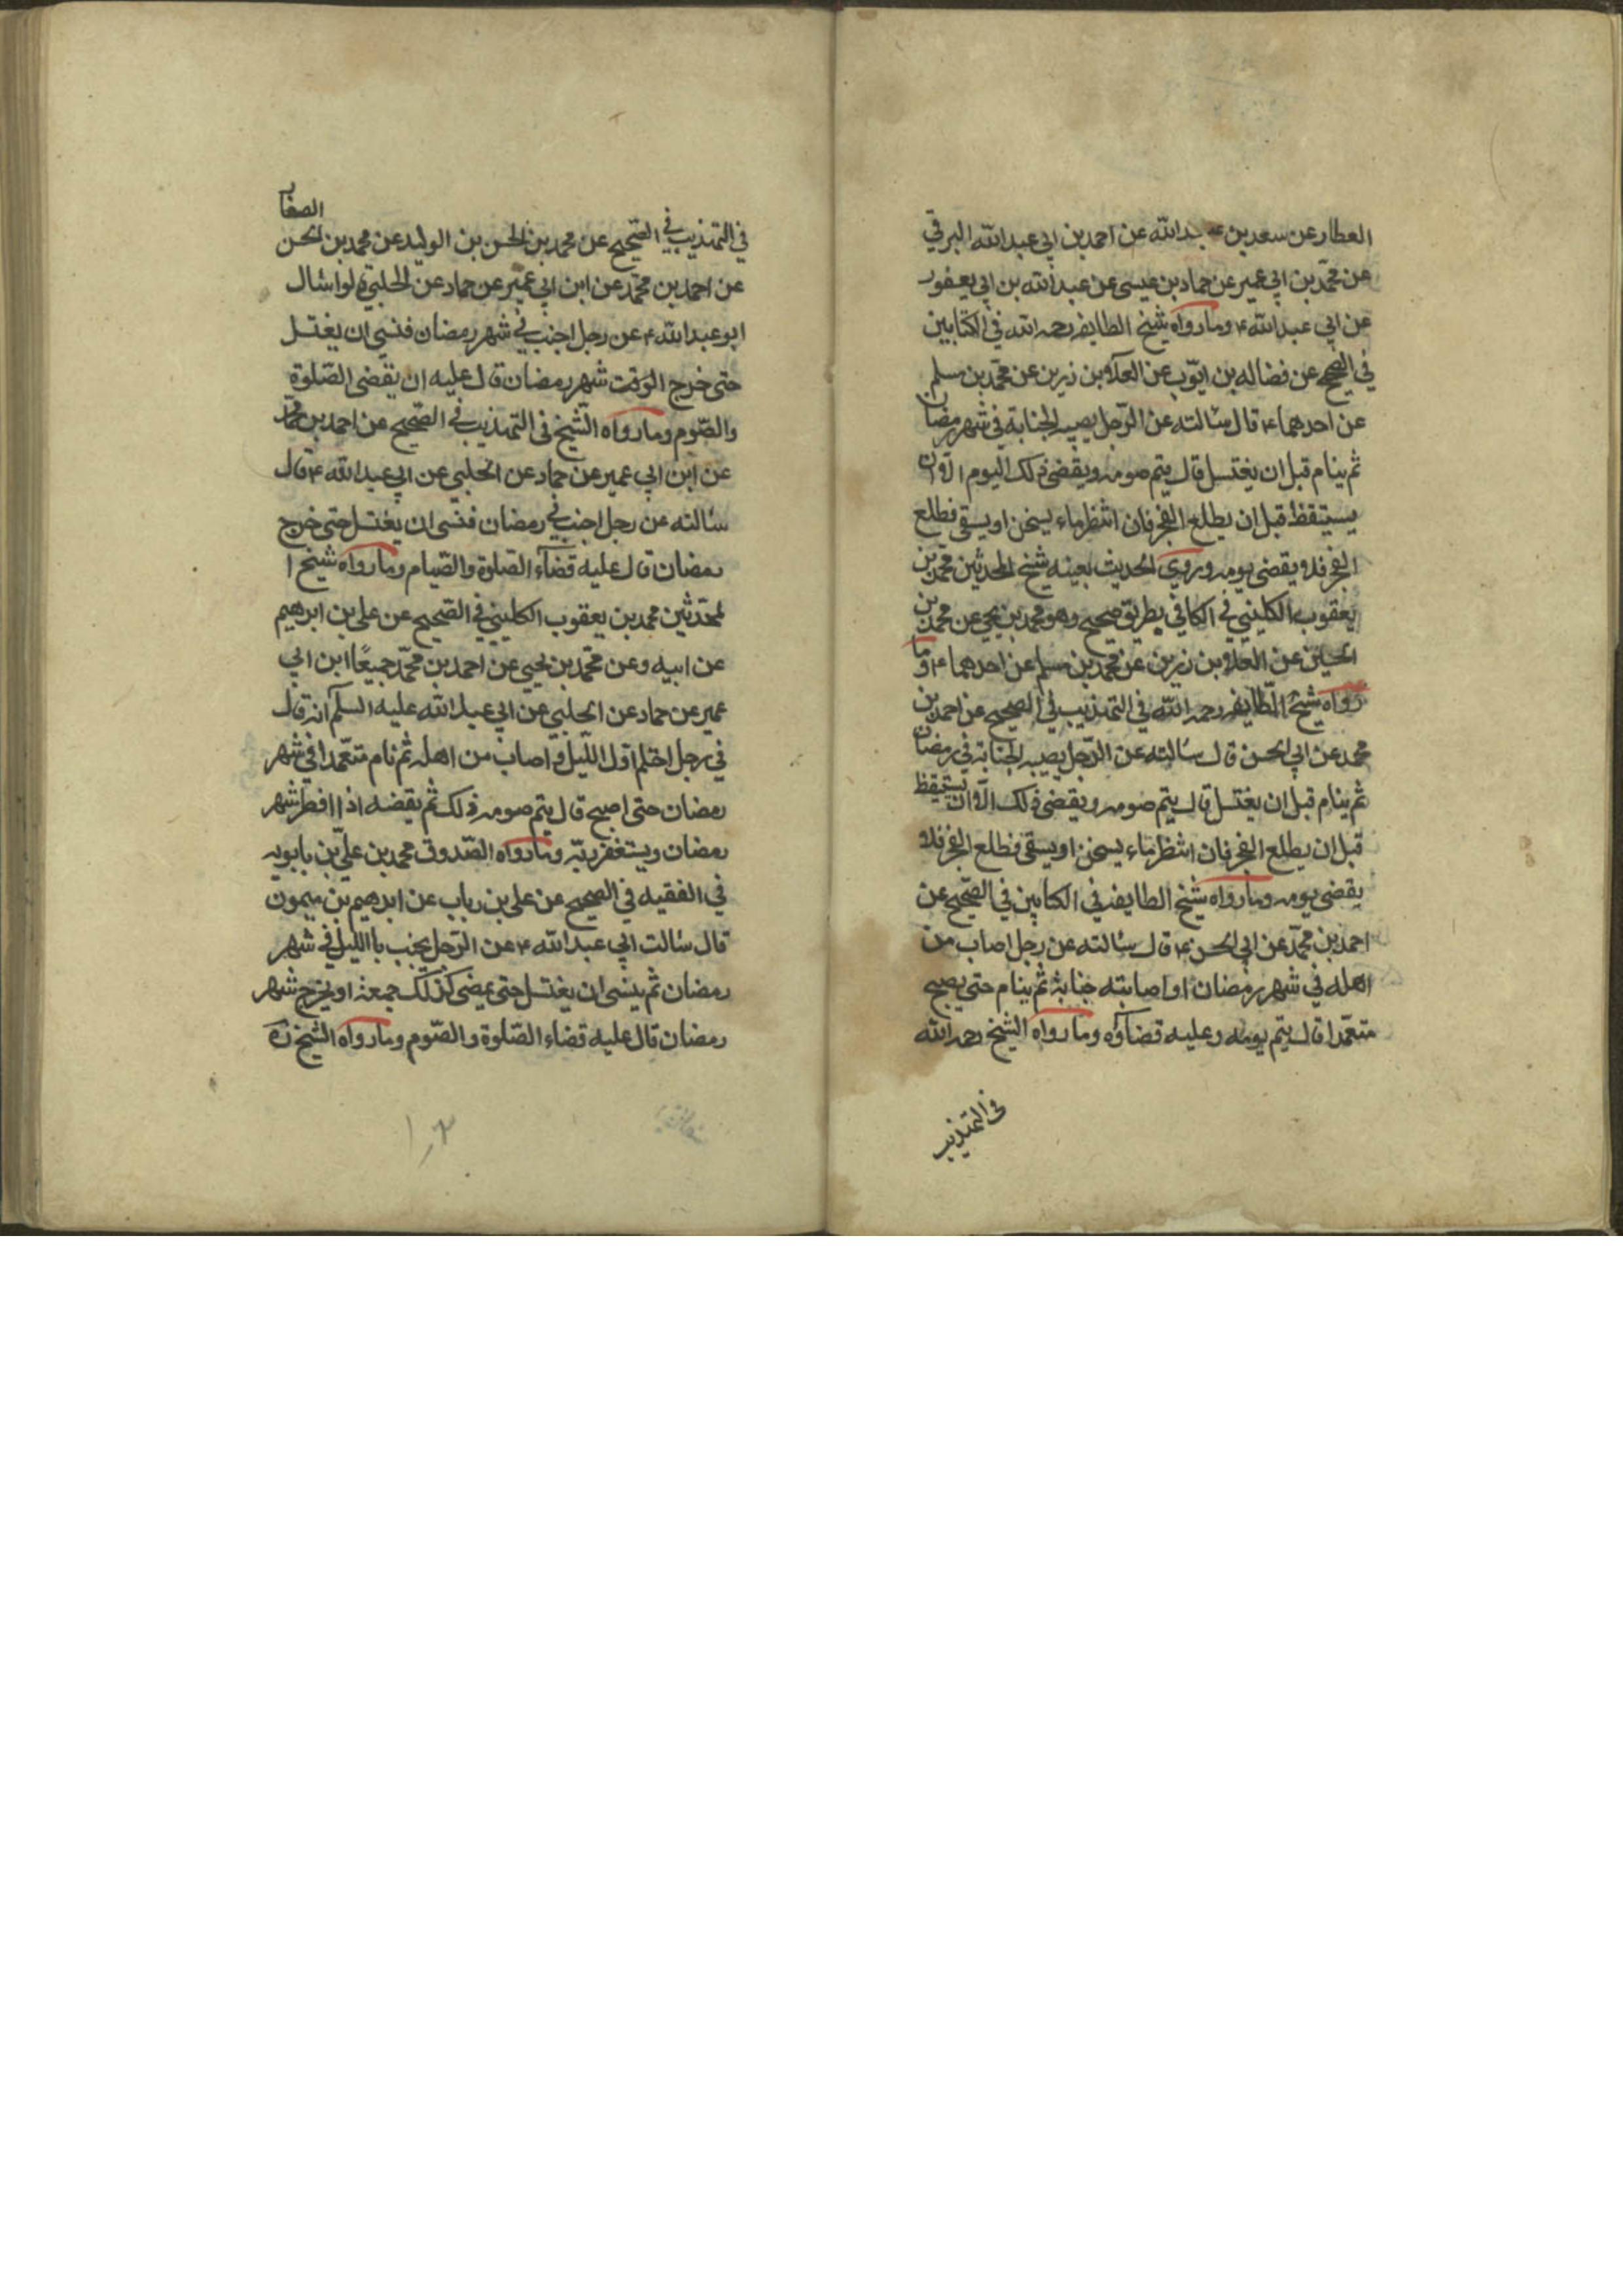 العطار عن سعد بن عبدالله عن احمد بن ابي عبدالله البرقي
عن محمد بن ابي عمير عن حماد بن عيسى عن عبدالله بن ابي يعفور
عن ابي عبدالله ع وما رواه شيخ الطايفه رحمه الله في الكتابين
في الصحيح عن فضاله بن ايوب عن العلاء بن زرين عن محمد بن مسلم
عن احدهما ع قال سئالته عن الرجل يصيبه الجنابة في شهر رمضان
ثم ينام قبل ان يغتسل قال يتم صومه ويقضى ذلك اليوم الا ان
يستيقظ قبل ان يطلع الفجر فان انتظر ماء يسخن او يسقى فطلع
الفجر فلا يقضى يومه وروي الحديث بعينه شيخ المحدثين محمد بن
يعقوب الكليني في الكافي بطريق صحيح وهو محمد بن يحيى عن محمد بن
الحسين عن العلاء بن زرين عن محمد بن مسلم عن احدهما ع وما
رواه شيخ الطايفه رحمه الله في التهذيب في الصحيح عن احمد بن
محمد عن ابي الحسن قال سئالته عن الرجل يصيبه الجنابة في رمضان
ثم ينام قبل ان يغتسل قال يتم صومه ويقضى ذلك الا ان يستيقظ
قبل ان يطلع الفجر فان انتظر ماء يسخن او يسقى فطلع الفجر فلا
يقضى يومه وما رواه شيخ الطايفه في الكتابين في الصحيح عن
احمد بن محمد عن ابي الحسن ع قال سئالته عن رجل اصاب من
اهله في شهر رمضان او اصابته جنابة ثم ينام حتى يصبح
متعمدا قال يتم يومه وعليه قضاؤه وما رواه الشيخ رحمه الله
في التهذيب
في التهذيب في الصحيح عن محمد بن الحسن بن الوليد عن محمد بن الحسن الصفار
عن احمد بن محمد عن ابن ابي عمير عن حماد عن الحلبي سئال
ابو عبدالله ع عن رجل اجنب في شهر رمضان فنسي ان يغتسل
حتى خرج الوقت شهر رمضان قال عليه ان يقضى الصلوة
والصوم وما رواه الشيخ في التهذيب في الصحيح عن احمد بن محمد
عن ابن ابي عمير عن حماد عن الحلبي عن ابي عبدالله ع قال
سئالته عن رجل اجنب في رمضان فنسى ان يغتسل حتى خرج
رمضان قال عليه قضاء الصلوة والصيام وما رواه شيخ ا
لمحدثين محمد بن يعقوب الكليني في الصحيح عن على بن ابرهيم
عن ابيه وعن محمد بن يحيى عن احمد بن محمد جميعًا ابن ابي
عمير عن حماد عن الحلبي عن ابي عبدالله عليه السلم انه قال
في رجل احتلم اول الليل و اصاب من اهله ثم نام متعمدا في شهر
رمضان حتى اصبح قال يتم صومه ذلك ثم يقضه اذا افطر شهر
رمضان ويستغفر ربه وما رواه الصدوق محمد بن علي بن بابويه
في الفقيه في الصحيح عن على بن رباب عن ابرهيم بن ميمون
قال سئالت ابي عبدالله ع عن الرجل يجنب باالليل في شهر
رمضان ثم ينسى ان يغتسل حتى يمضى كذلك جمعة او يخرج شهر
رمضان قال عليه قضاء الصلوة والصوم وما رواه الشيخ ره